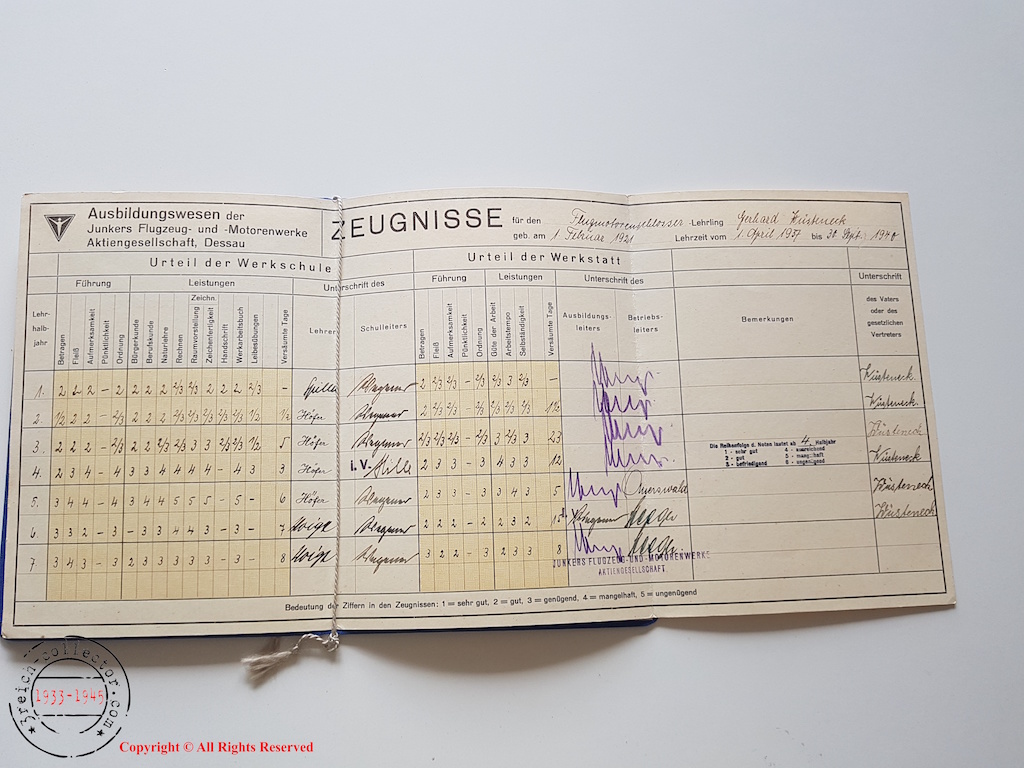 Ausbildungswesen der
Junkers Flugzeug- und -Motorenwerke
Aktiengesellschaft, Dessau
ZEUGNISSE
für den Flugmotorenschlosser -Lehrling Gerhard Wüsteneck
geb. am 1. Februar 1921 Lehrzeit vom 1. April 1937 bis 30. Sept. 1940
Urteil der Werkschule Urteil der Werkstatt
Führung Leistungen Unterschrift des Führung Leistungen Unterschrift des Unterschrift
Lehr-
halb-
jahr
Betragen
Fleiß
Aufmerksamkeit
Pünktlichkeit
Ordnung
Bürgerkunde
Berufskunde
Naturlehre
Rechnen
Zeichn.
Raumvorstellung
Zeichenfertigkeit
Handschrift
Werkarbeitsbuch
Leibesübungen
Versäumte Tage
Lehrers
Schulleiters
Betragen
Fleiß
Aufmerksamkeit
Pünktlichkeit
Ordnung
Güte der Arbeit
Arbeitstempo
Selbständigkeit
Versäumte Tage
Ausbildungs-
leiters
Betriebs-
leiters
Bemerkungen
des Vaters
oder des
gesetzlichen
Vertreters
1. 2 2 2 – 2 2 2 2 2/3 2/3 2 2 2 2/3 – 2 2/3 2/3 – 2/3 2/3 3 2/3 – Wüsteneck.
2. 1/2 2 2 – 2/3 2 2 2 2/3 2/3 2/3 2/3 2/3 1/2 Höfer Wüsteneck.
3. 2 2 2 – 2/3 2 2 2/3 2/3 3 3 2/3 2/3 1/2 5 Höfer 2/3 2/3 2/3 – 2/3 3 2/3 3 23 Wüsteneck
4. 2 3 4 – 4 3 3 4 4 4 4 – 4 3 3 Höfer i. V. Hille 2 3 3 – 3 4 3 3 12 Wüsteneck
5. 3 4 4 – 4 3 4 4 5 5 5 – 5 – 6 Höfer 2 3 3 – 3 3 4 3 5 Wüsteneck
6. 3 3 2 – 3 – 3 3 4 4 3 – 3 – 7 2 2 2 – 2 2 3 2 Wüsteneck
7 3 4 3 – 3 2 3 3 3 3 3 – 3 – 8 3 2 2 – 3 2 3 3 8
Die Reihenfolge d. Noten lautet ab 4. Halbjahr
1 - sehr gut 4 - ausreichend
2 - gut 5 - mangelhaft
3 - befriedigend 6 - ungenügend
JUNKERS FLUGZEUG-UND-MOTORENWERKE
AKTIENGESELLSCHAFT
Bedeutung der Ziffern in den Zeugnissen: 1 = sehr gut, 2 = gut, 3 = genügend, 4 = mangelhaft, 5 = ungenügend
3reich-collector.com
1933-1945
Copyright © All Rights Reserved